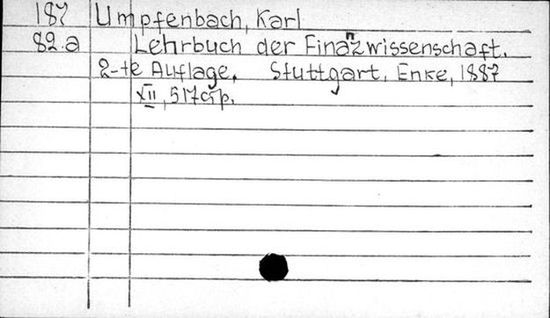 187 Umpfenbach, Karl
82.a Lehrbuch der Finanzwissenschaft.
2-te Auflage. Stuttgart, Enke, 1887
XII, 517 стр.